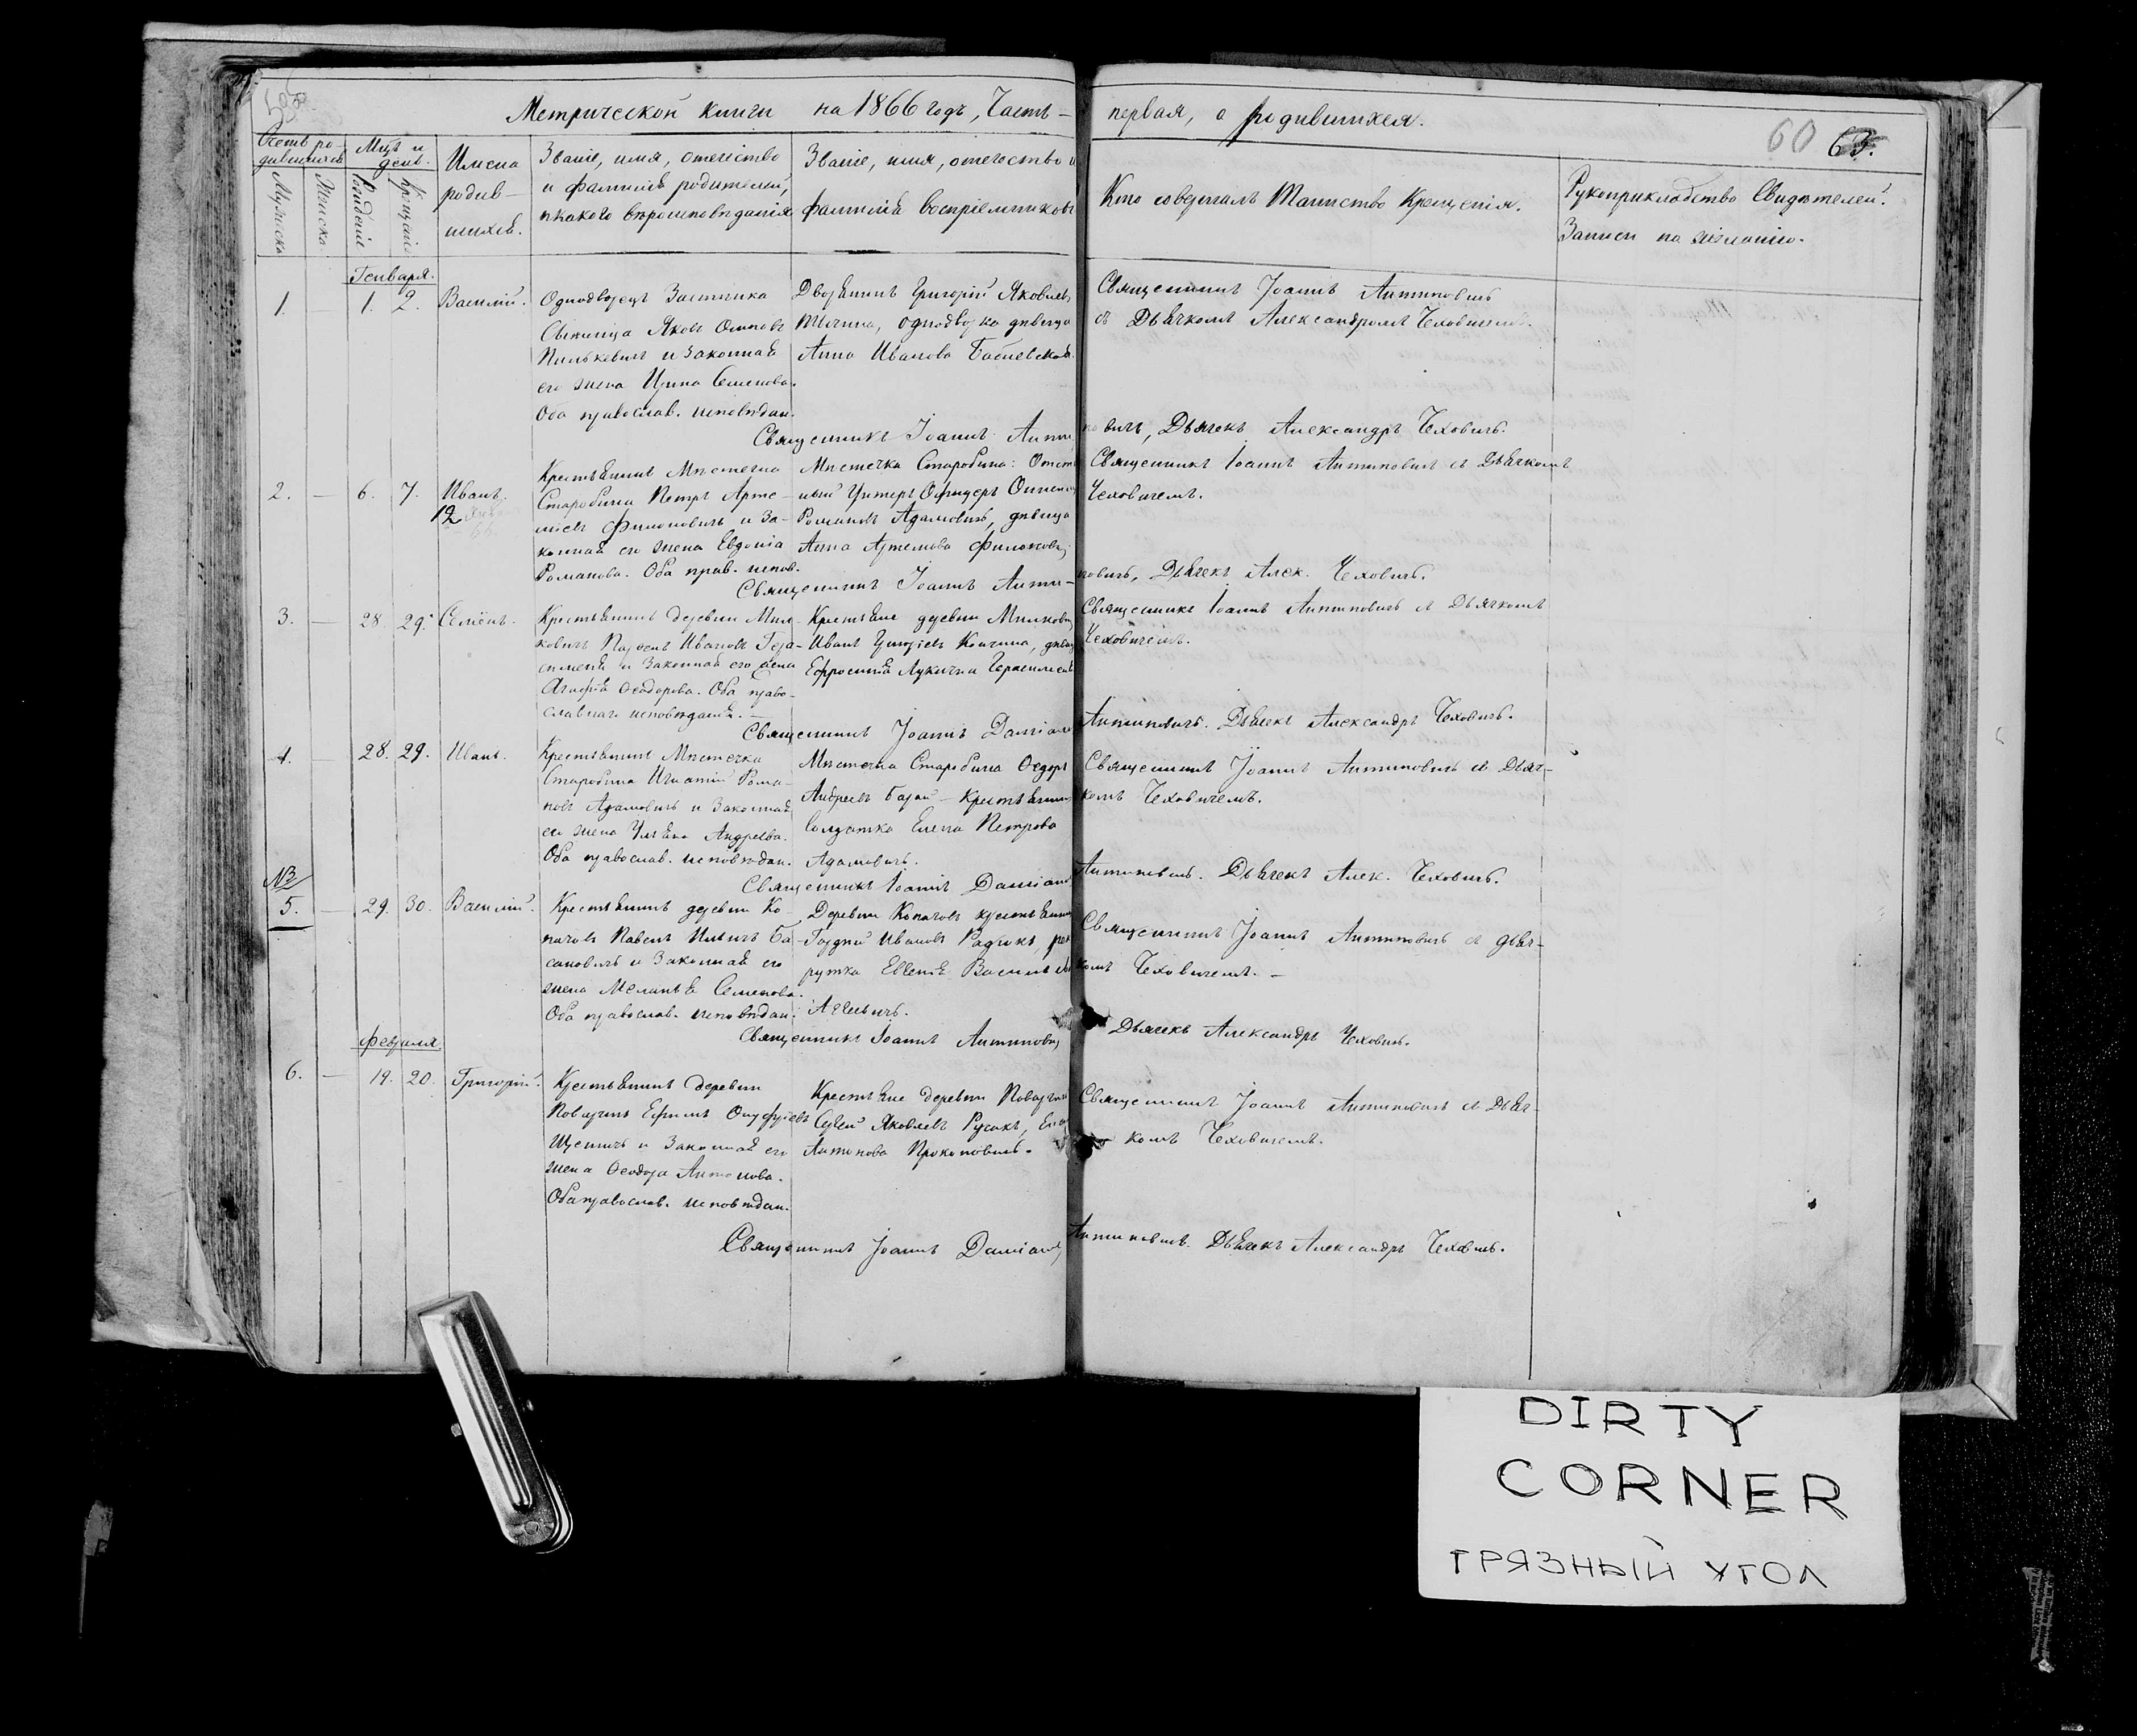 Метрической книги на 1866 годъ, Часть - первая, о родившихся.
60 63.
Счетъ ро-
дившихся
Мужска
Женска
Мцъ и
день.
Рожденіе
Крещеніе
Имена
родив-
шихся.
Званіе, имя, отчество
и фамилія родителей,
и какого вѣроисповѣданія
Званіе, имя, отчество и
фамилія воспріемниковъ
Кто совершалъ Таинство Крещенія.
Рукоприкладство Свидѣтелей.
Записи по желанію.
Генваря.
1. — 1. 2. Василій.
Однодворецъ Застѣнка
Яковъ Осиповъ
и законная
его жена Ирина Семенова.
Оба православ. исповѣдан.
Дворянинъ Григорій Яковлевъ
однодворка дѣвица
Анна Иванова
Священникъ Іоаннъ Антиповичъ
съ Дьячкомъ Александромъ Чеховичемъ.
Священникъ Іоаннъ Антиповичъ, Дьячекъ Александръ Чеховичъ.
2. — 6. 7. Иванъ.
12
Крестьянинъ Мѣстечка
Старобина Петръ Арте-
міевъ Филоновичъ и за-
конная его жена Евдокія
Романова. Оба прав. испов.
Мѣстечка Старобина: Отст
ный Унтеръ Офицеръ
Романовъ Адамовичъ, дѣвица
Анна Артемова Филонович
Священникъ Іоаннъ Антиповичъ съ Дьячкомъ
Чеховичемъ.
Священникъ Іоаннъ Анти-повичъ, Дьячекъ Алек. Чеховичъ.
3. — 28. 29. Семёнъ.
Крестьянинъ деревни Мил-
ковичъ Ивановъ Гера-
сименя и законная его жена
Агафія Ѳеодорова. Оба право-
славнаго исповѣданія.
Крестьяне деревни Милкович
Иванъ
Ефросинія Лукична Герасименя
Священникъ Іоаннъ Антиповичъ съ Дьячкомъ
Чеховичемъ.
Священникъ Іоаннъ Даміанов Антиповичъ. Дьячекъ Александръ Чеховичъ.
4. 28. 29. Иванъ.
Крестьянинъ Мѣстечка
Старобина Игнатій Рома-
новъ Адамовичъ и законная
его жена Ульяна Андреева.
Оба православ. исповѣдан.
Мѣстечка Старобина Ѳедоръ
Андреевъ - Крестьянинъ
Солдатка Елена Петрова
Адамовичъ.
Священникъ Іоаннъ Антиповичъ съ Дьяч-
комъ Чеховичемъ.
Священникъ Іоаннъ Даміанов Антиповичъ. Дьячекъ Алек. Чеховичъ.
NB
5. — 29. 30. Василій.
Крестьянинъ деревни Ко-
пачовъ Павелъ Ильичъ Ба-
сановичъ и законная его
жена Меланья Семенова.
Оба православ. исповѣдан.
Деревни Копачовъ крестьянинъ
Гордѣй Ивановъ Радюкъ, рек
рутка Евгенія Васильева
Священникъ Іоаннъ Антиповичъ съ дьяч-
комъ Чеховичемъ. —
Священникъ Іоаннъ Антипович Дьячекъ Александръ Чеховичъ.
Февраля.
6. — 19. 20. Григорій.
Крестьянинъ деревни
Ефимъ Онуфріевъ
и законная его
жена Ѳеодора Антонова.
Оба православ. исповѣдан.
Крестьяне деревни
Яковлевъ Русакъ,
Антонова Прокоповичъ.
Священникъ Іоаннъ Антиповичъ съ Дьяч-
комъ Чеховичемъ.
Священникъ Іоаннъ Даміанов Антиповичъ. Дьячекъ Александръ Чеховичъ.
DIRTY
CORNER
ГРЯЗНЫЙ УГОЛ